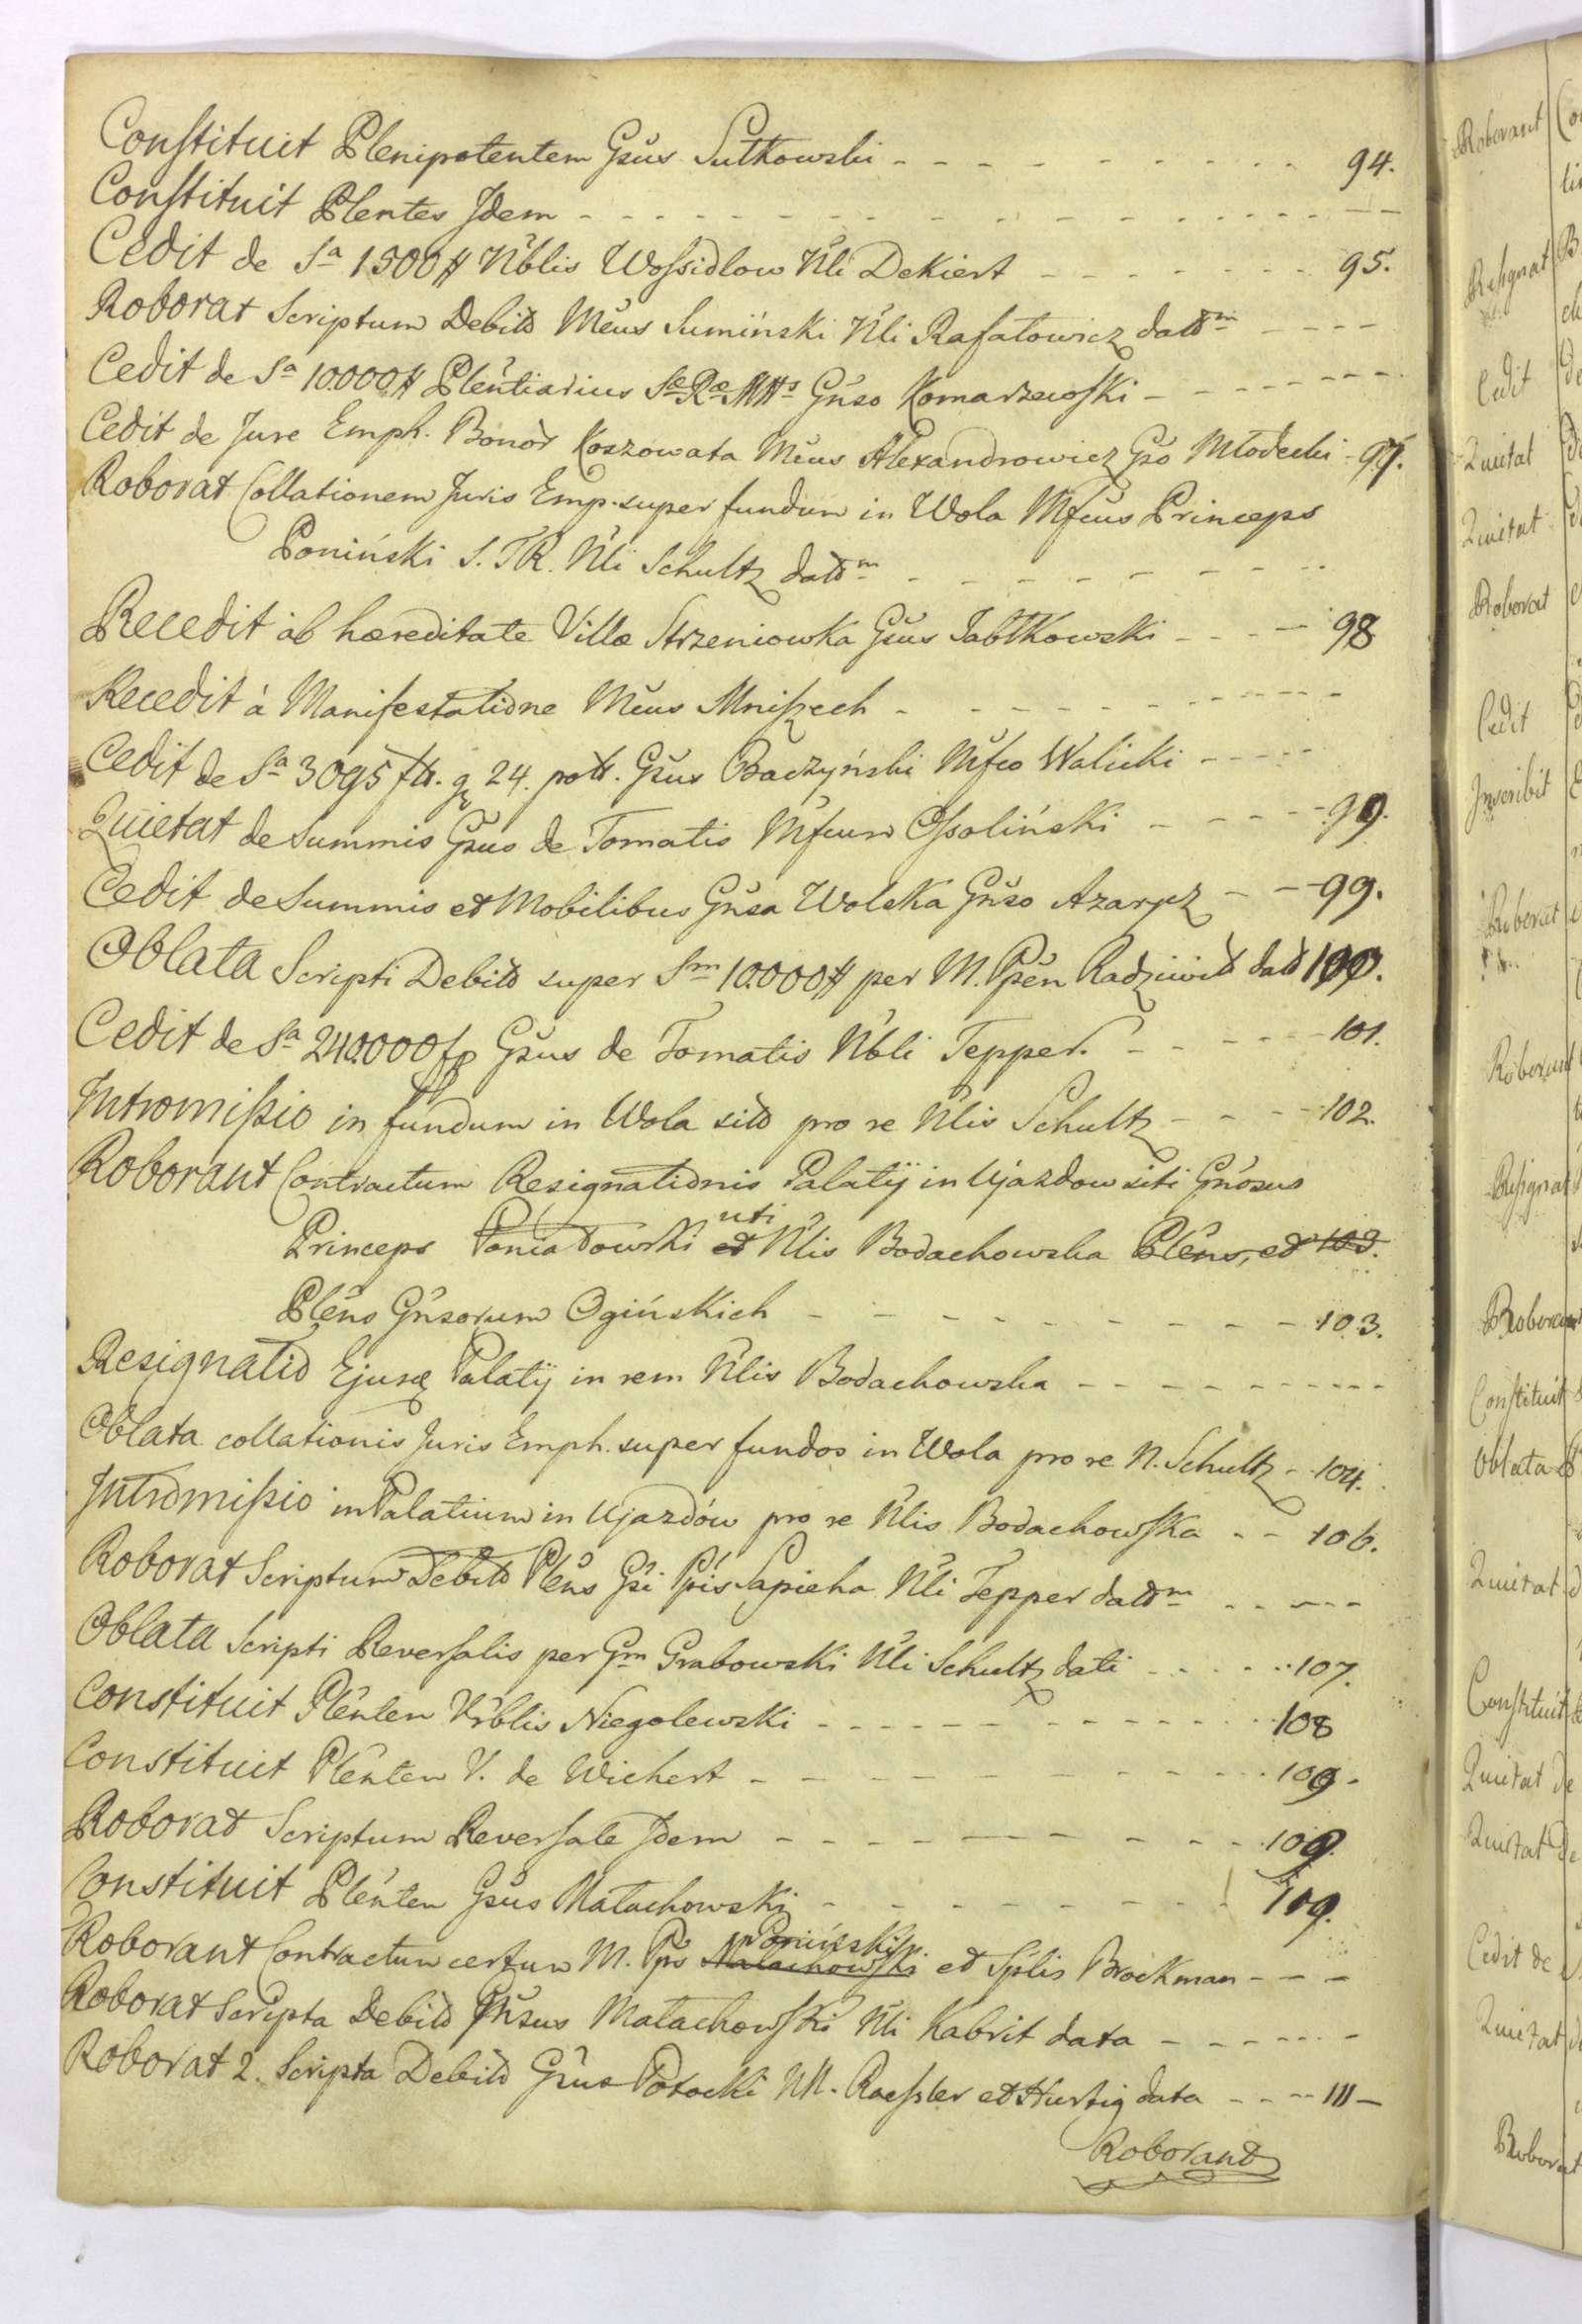 Constituit Plenipotentem Gsŭs Sułkowski - - - - - - - - - 94.
Constituit Plentes Jdem - - - - - - - - - - - - - - -
Cedit de Sa 1500 # Nblis Wossidlow Nli Dekiert - - - - - - - 95.
Roborat Scriptum Debiti Mcus Sumiński Nli Rafałowicz datum - - - -
Cedit de Sa 10000 # Plentiarius Sæ Ræ Mtts Gnso Komarzewski - - - - - - -
Cedit de Jure Emph. Bonor Koszowata Mcus Alexandrowicz Gso Młodecki - 97.
Roborat Collationem Juris Emp. super fundum in Wola Mfcus Princeps
Poniński S. T R. Nli Schultz datm - - - - - - - - -
Recedit ab hæreditate Villæ Strzeniowka Gsus Jabłkowski - - - - 98
Recedit à Manifestatione Mcus Mniszech - - - - - - - - - - -
Cedit de Sa 3095 ftt. g 24. pott. Gsus Baczyński Mfco Walicki - - - -
Quietat de Summis Gsus de Tomatis Mfcum Ossoliński - - - - - 99.
Cedit de Summis et Mobilibus Gnsa Wolska Gnso Azarycz - - 99.
Oblata Scripti Debiti super Sm 10.000 # per M. Ppen Radziwiłł dati 100.
Cedit de Sa 240.000 fp Gsus de Tomatis Nbli Tepper. - - - - - 101.
Intromissio in fundum in Wola siti pro re Nlis Schultz - - - - 102.
Roborant Contractum Resignationis Palatij in Ujazdow siti Gnosus
Princeps Poniatowski et uti Nlis Bodachowska Plens, et 103.
Plens Gnsorum Ogińskich - - - - - - - - - - 103.
Resignatio Ejusq Palatij in rem Nlis Bodachowska - - - - - - - - - -
Oblata collationis Juris Emph. super fundos in Wola pro re N. Schultz - 104.
Intromissio in Palatium in Ujazdów pro re Nlis Bodachowska - - 106.
Roborat Scriptum Debiti Plens Gsi Ppis Sapieha Nli Tepper datm - - - - -
Oblata Scripti Reversalis per Gm Grabowski Nli Schultz dati - - - - - 107.
Constituit Plenten Nblis Niegolewski - - - - - - - - - - - - 108
Constituit Plenten V. de Wichert - - - - - - - - - - - 109.
Roborat Scriptum Reversale Jdem - - - - - - - - - - 109.
Constituit Plenten Gsus Małachowski - - - - - - - - 109.
Roborant Contractum certum M. Pps Małachowski Poniński et Splis Brockman - - -
Roborat Scripta Debiti Gnsus Małachowski Nli Kabrit data - - - - - -
Roborat 2. Scripta Debiti Gsus Potocki NN. Raessler et Hurtig data - - - - 111 -
Roborant
Roborant
Resignat
Cedit
Quietat
Quietat
Roborat
Cedit
Inscribit
Roborat
Roborant
Resignat
Roborant
Constituit
Oblata
Quietat
Constituit
Quietat de
Quietat de
Cedit de
Quietat
Roborat